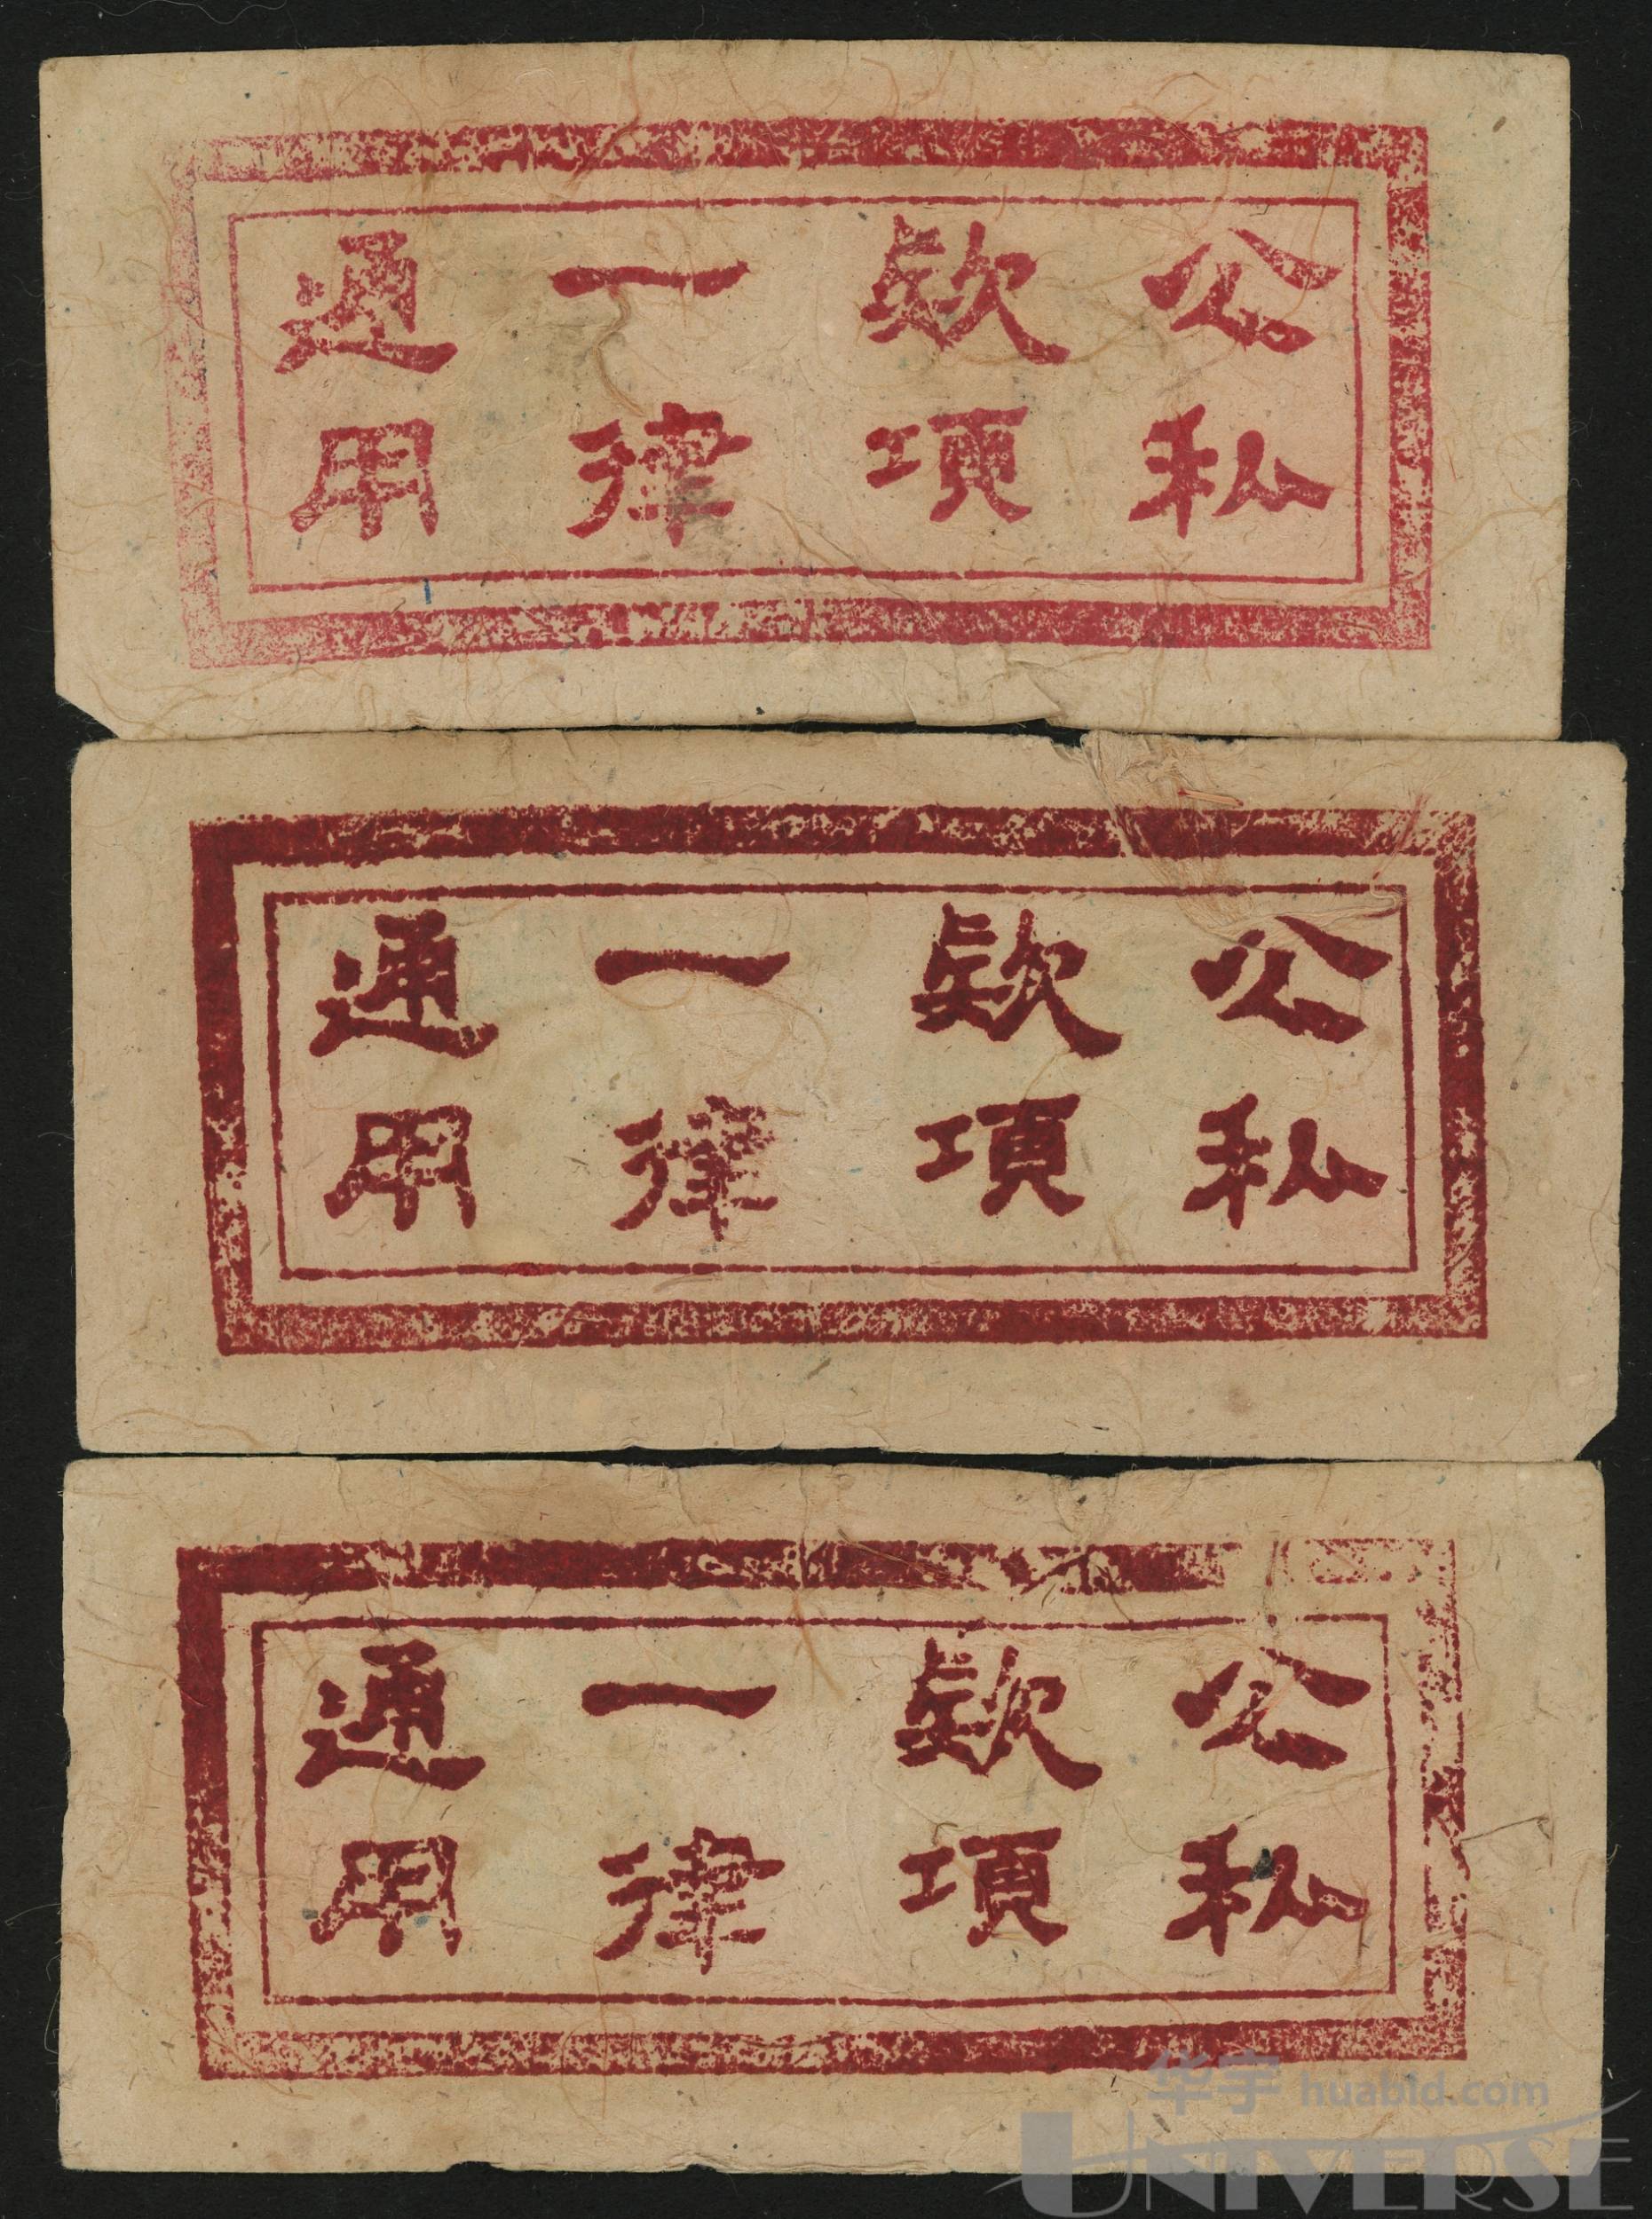 公私
欵項
一律
通用
公私
欵項
一律
通用
公私
欵項
一律
通用
华宇 huabid.com
UNIVERSE